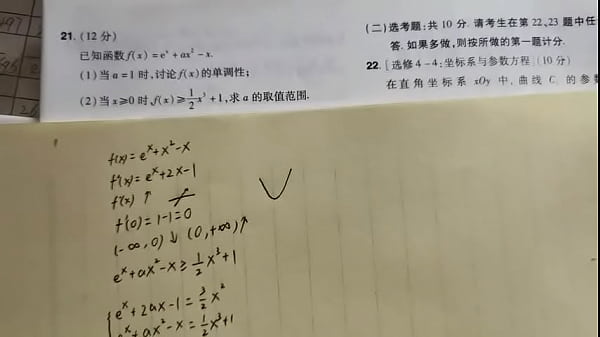 21. (12 分)
已知函数 f(x) = eˣ + ax² - x.
(1) 当 a = 1 时, 讨论 f(x) 的单调性;
(2) 当 x ≥ 0 时, f(x) ≥ 1/2 x³ + 1, 求 a 的取值范围.
(二) 选考题: 共 10 分. 请考生在第 22、23 题中任
答. 如果多做, 则按所做的第一题计分.
22. [选修 4-4: 坐标系与参数方程] (10 分)
在直角坐标系 xOy 中, 曲线 C 的参
f(x) = eˣ + x² - x
f'(x) = eˣ + 2x - 1
f'(x) ↑
f'(0) = 1 - 1 = 0
(-∞, 0) ↓ (0, +∞) ↑
eˣ + ax² - x ≥ 1/2 x³ + 1
eˣ + 2ax - 1 = 3/2 x²
eˣ + ax² - x = 1/2 x³ + 1